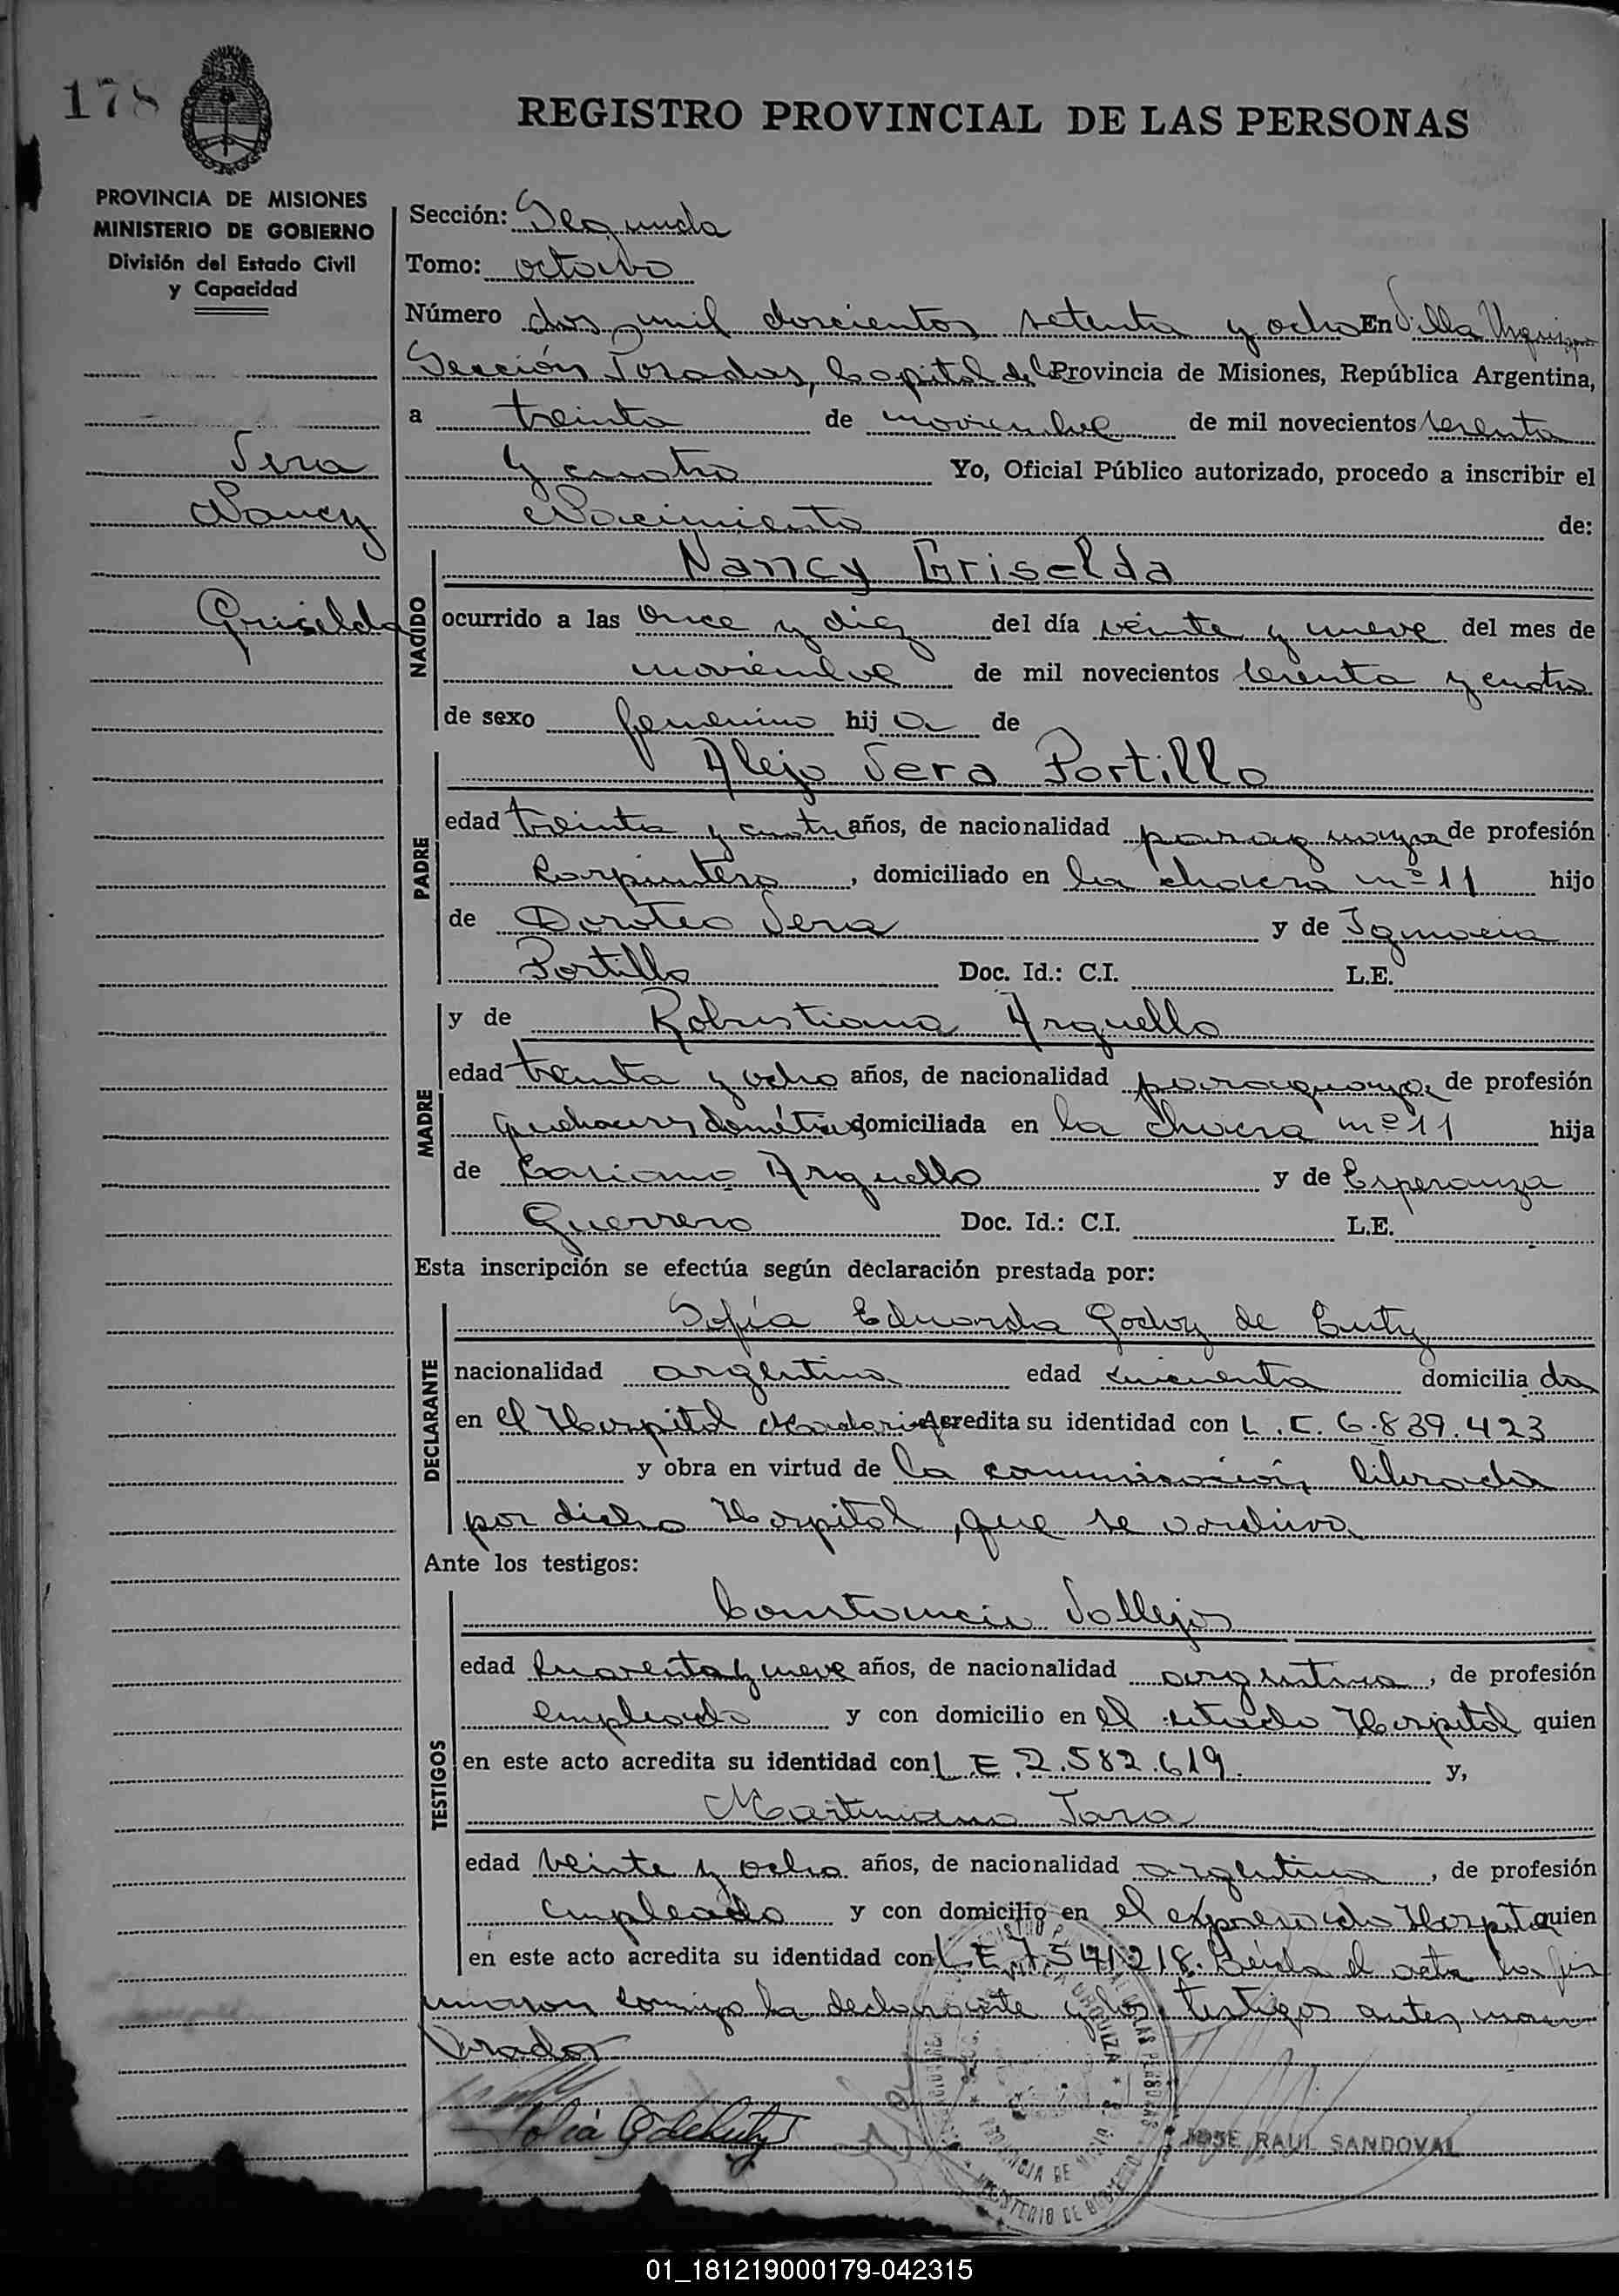 178
REGISTRO PROVINCIAL DE LAS PERSONAS
PROVINCIA DE MISIONES
MINISTERIO DE GOBIERNO
División del Estado Civil
y Capacidad
Vera
Nancy
Griselda
Sección: Segunda
Tomo: octavo
Número dos mil doscientos setenta y ocho En Villa Urquiza
Sección Posadas, Capital de la Provincia de Misiones, República Argentina,
a treinta de noviembre de mil novecientos sesenta
y cuatro Yo, Oficial Público autorizado, procedo a inscribir el
Nacimiento de:
NACIDO
Nancy Griselda
ocurrido a las Once y diez del día veinte y nueve del mes de
noviembre de mil novecientos sesenta y cuatro
de sexo femenino hij a de
PADRE
Alejo Vera Portillo
edad treinta y cuatro años, de nacionalidad paraguaya de profesión
Carpintero, domiciliado en la chacra nº 11 hijo
de Doroteo Vera y de Ignacia
Portillo Doc. Id.: C.I. L.E.
MADRE
y de Robustiana Arguello
edad treinta y ocho años, de nacionalidad paraguaya, de profesión
domiciliada en la chacra nº 11 hija
de Arguello y de Esperanza
Guerrero Doc. Id.: C.I. L.E.
Esta inscripción se efectúa según declaración prestada por:
DECLARANTE
Sofía Eduarda Godoy de
nacionalidad argentina edad cincuenta domicilia da
en el Hospital Madariaga Acredita su identidad con L.C. 6.839.423
y obra en virtud de la librada
por dicho Hospital, que se archiva
Ante los testigos:
TESTIGOS
Constancio Vallejos
edad cuarenta y nueve años, de nacionalidad argentina, de profesión
empleado y con domicilio en el citado Hospital quien
en este acto acredita su identidad con L.E. 2.582.619. y,
Martiniano
edad veinte y ocho años, de nacionalidad argentina, de profesión
empleado y con domicilio en el expresado Hospital quien
en este acto acredita su identidad con L.E. 7.541.218. Leída el acta la fir
maron conmigo la declarante y los testigos antes
JOSE RAUL SANDOVAL
01_181219000179-042315